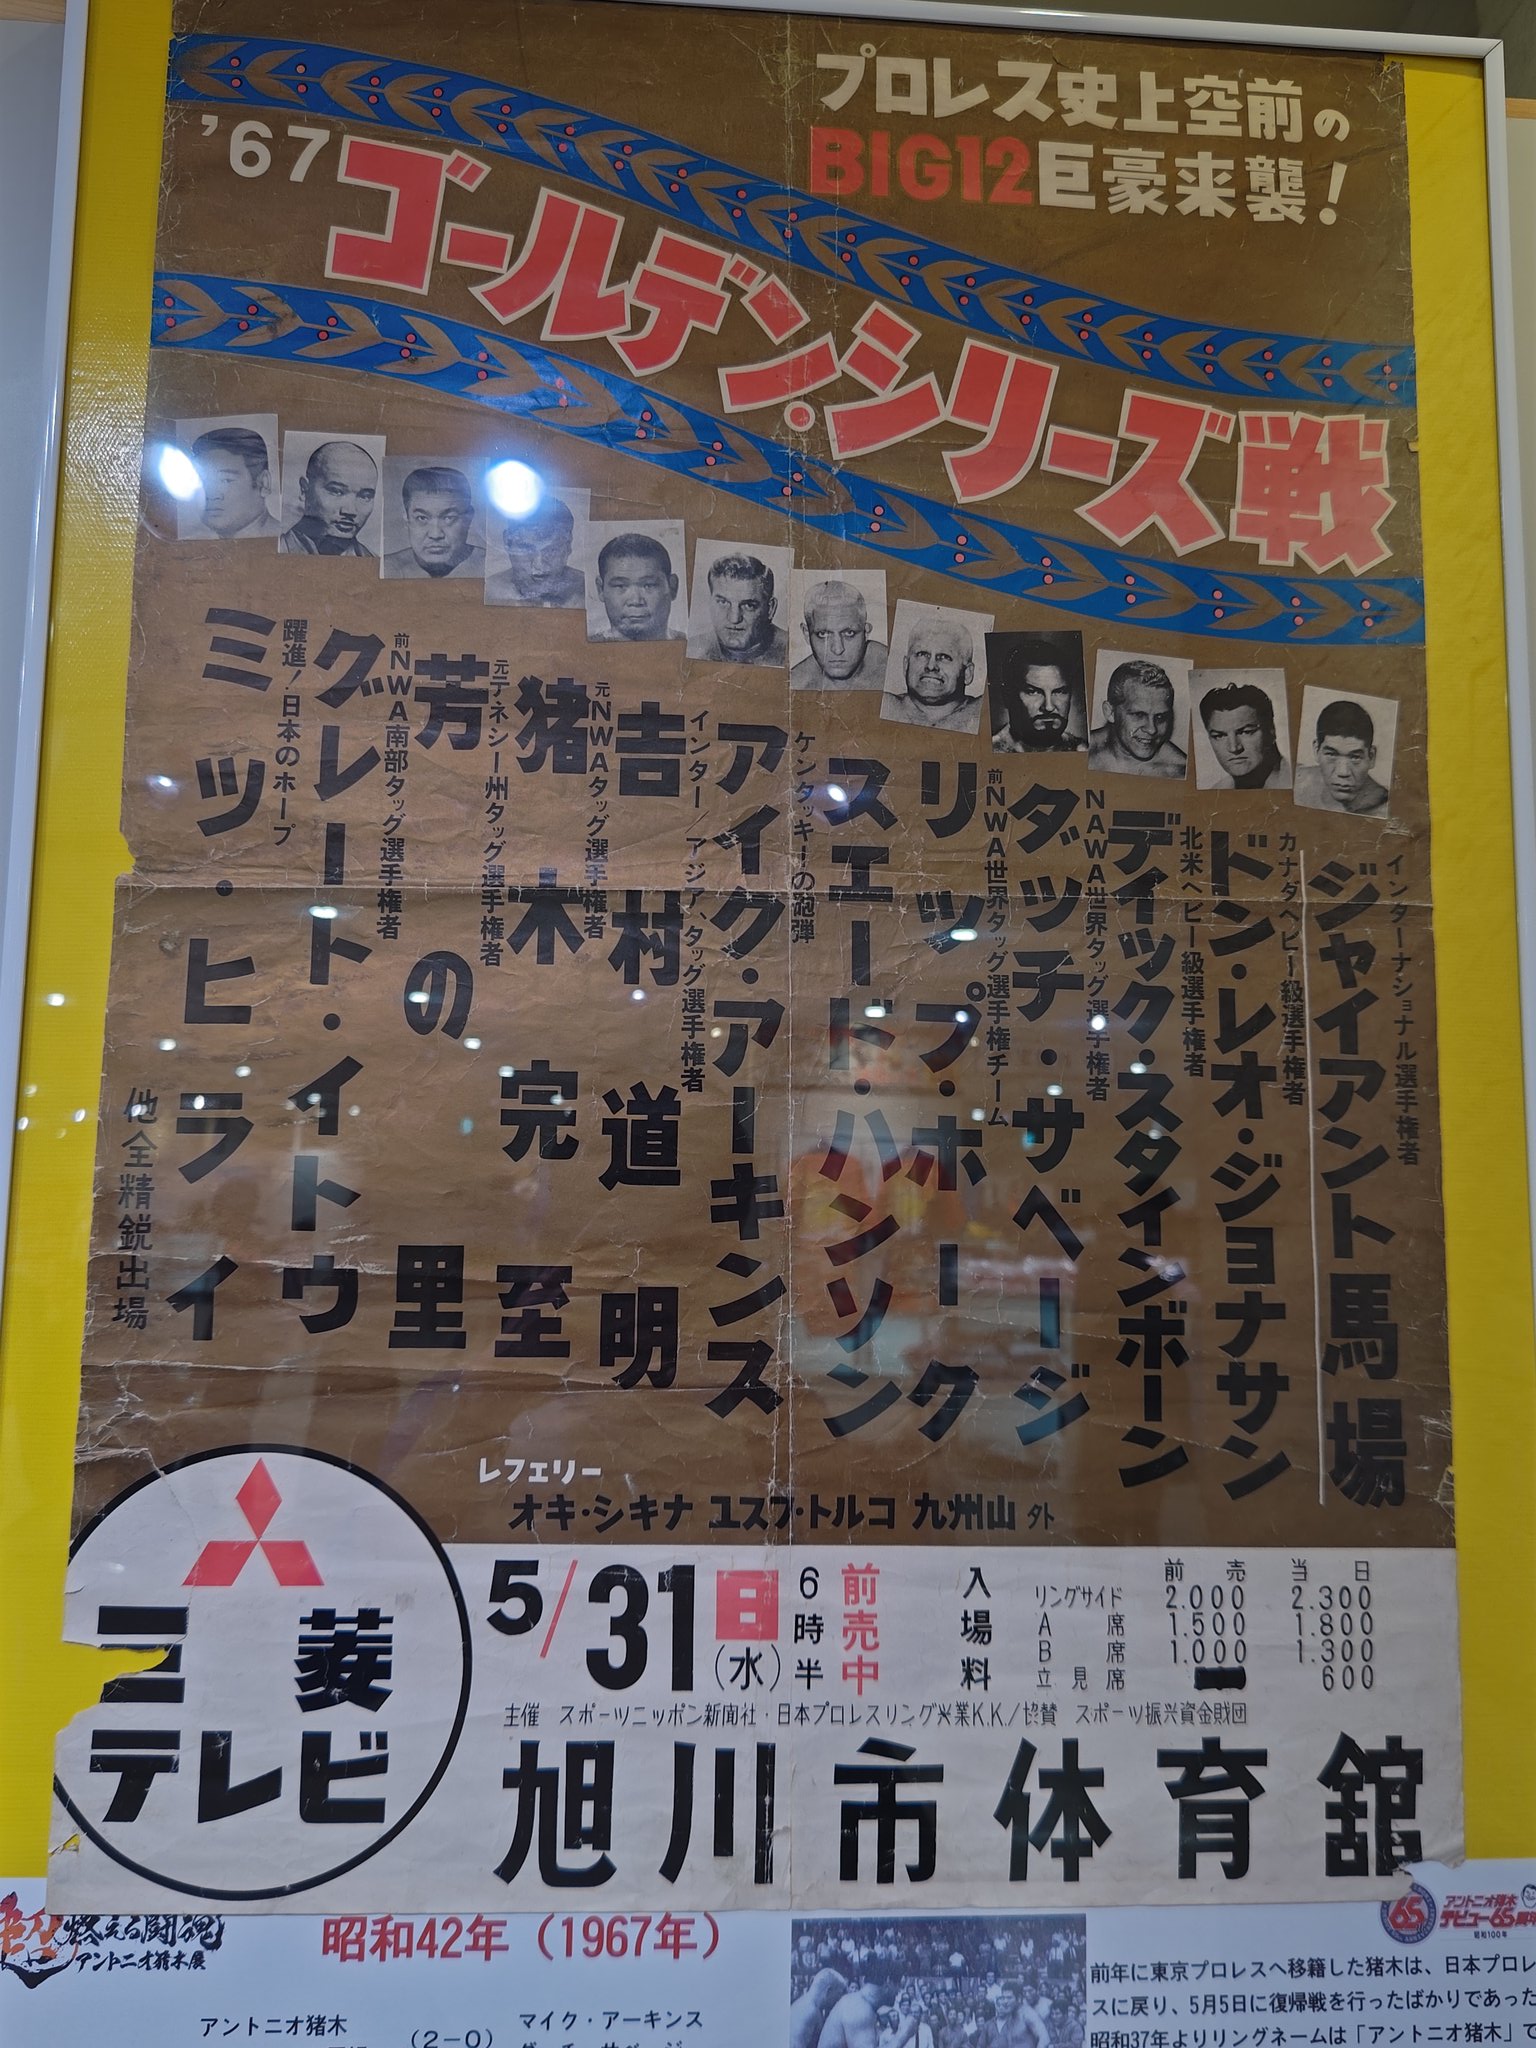 プロレス史上空前の
BIG12巨豪来襲!
'67
ゴールデン・シリーズ戦
インターナショナル選手権者
ジャイアント馬場
カナダヘビー級選手権者
ドン・レオ・ジョナサン
北米ヘビー級選手権者
ディック・スタインボーン
NAWA世界タッグ選手権者
ダッチ・サベージ
前NWA世界タッグ選手権チーム
リップ・ホーク
スエード・ハンソン
ケンタッキーの砲弾
アイク・アーキンス
インター/アジア、タッグ選手権者
吉村道明
元NWAタッグ選手権者
猪木完至
元テネシー州タッグ選手権者
芳の里
前NWA南部タッグ選手権者
グレート・イトウ
躍進!日本のホープ
ミツ・ヒライ
他全精鋭出場
レフェリー
オキ・シキナ ユスフ・トルコ 九州山 外
三菱
テレビ
5/31日(水)6時半
前売中
入場料
前売 当日
リングサイド 2.000 2.300
A席 1.500 1.800
B席 1.000 1.300
立見席 600
主催 スポーツニッポン新聞社・日本プロレスリング興業K.K./協賛 スポーツ振興資金財団
旭川市体育舘
燃える闘魂
アントニオ猪木展
昭和42年(1967年)
アントニオ猪木
(2-0)
マイク・アーキンス
65
アントニオ猪木
デビュー65周年
昭和100年
前年に東京プロレスへ移籍した猪木は、日本プロレ
スに戻り、5月5日に復帰戦を行ったばかりであった
昭和37年よりリングネームは「アントニオ猪木」で